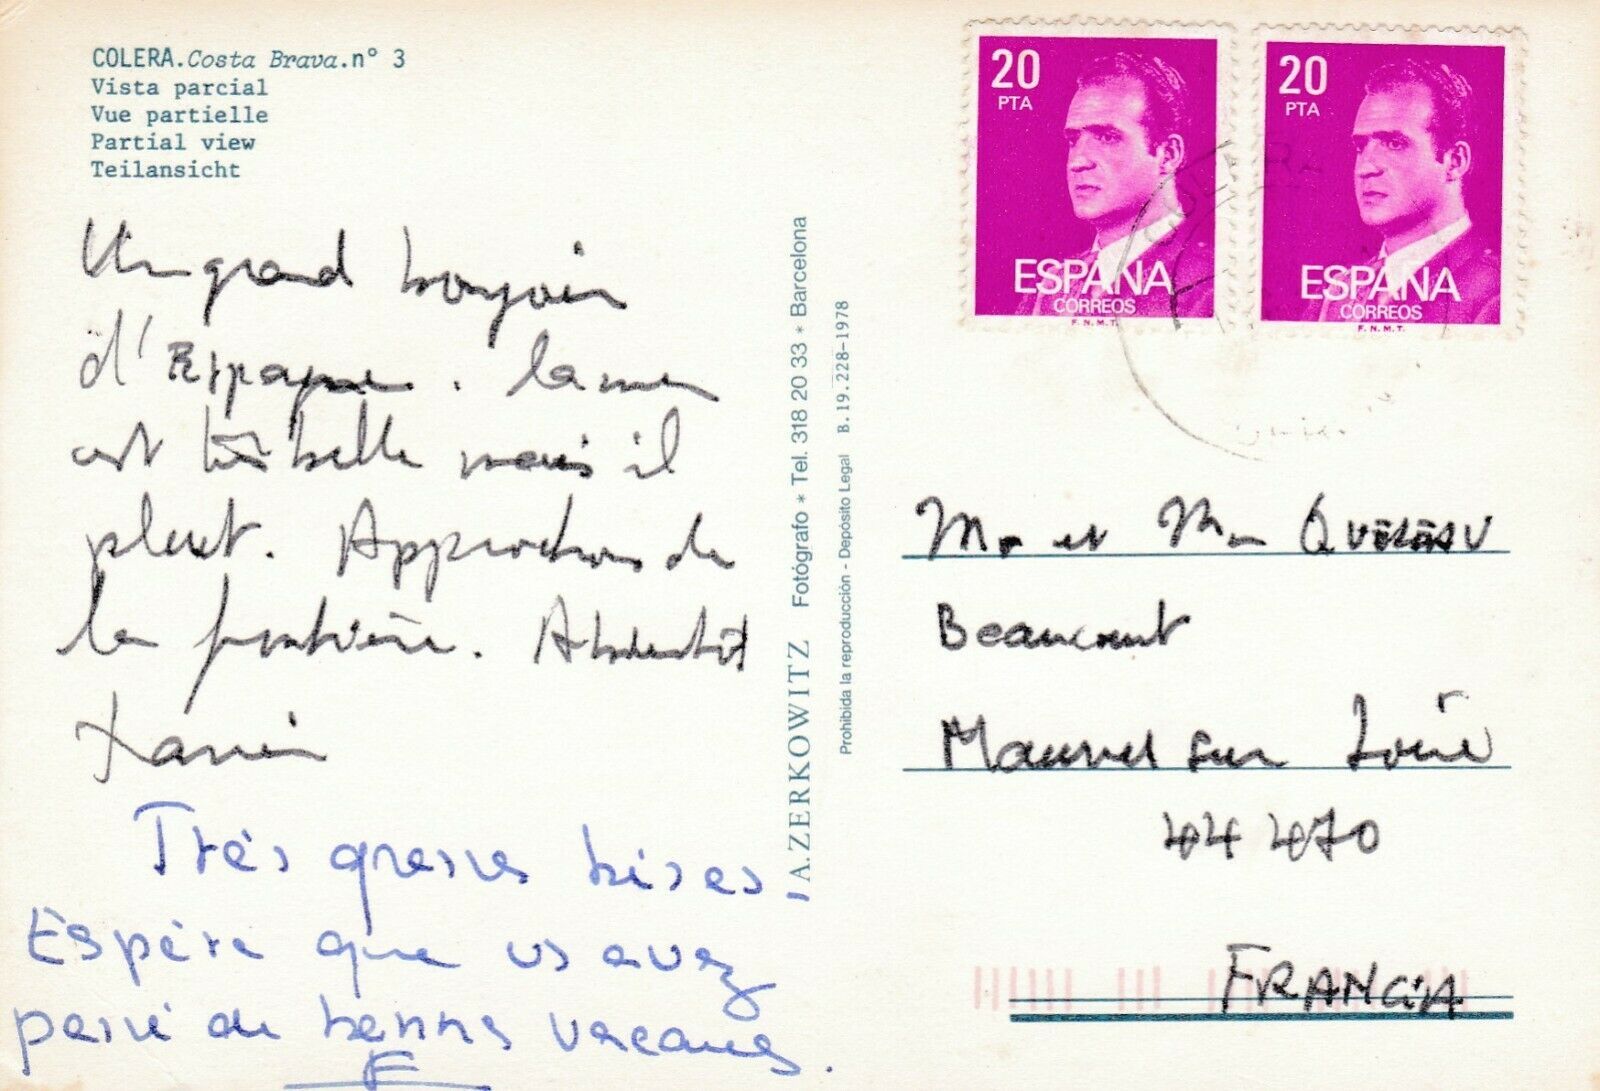 COLERA.Costa Brava.n° 3
Vista parcial
Vue partielle
Partial view
Teilansicht
Un grand bonjour
d'Espagne. la mer
est très belle mais il
pleut. Approchons de
la frontière. A bientôt
Xavier
Très grosses bises,
Espère que vs avez
passé de bonnes vacances.
F
A. ZERKOWITZ Fotógrafo * Tel. 318 20 33 * Barcelona
Prohibida la reproducción - Depósito Legal B. 19. 228-1978
20
PTA
ESPAÑA
CORREOS
F.N.M.T.
20
PTA
ESPAÑA
CORREOS
F.N.M.T.
Mr et Mme
Beaucourt
Mauves sur Loire
44 470
FRANCIA